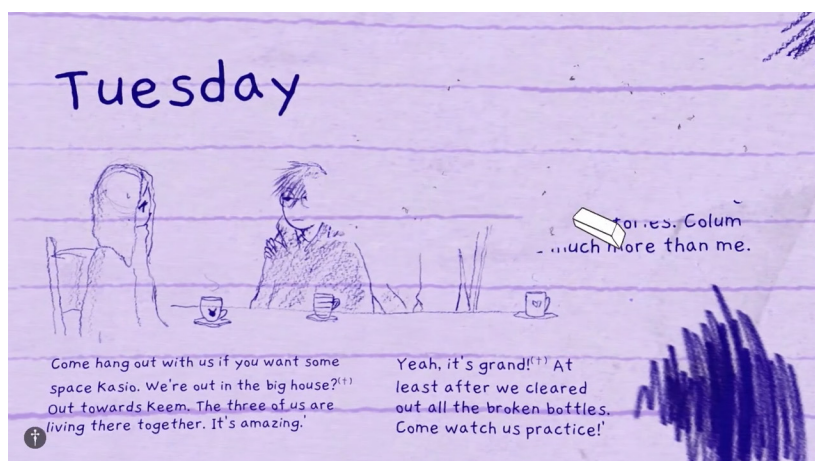 Tuesday
Colum
much more than me.
Come hang out with us if you want some
space Kasio. We're out in the big house?(†)
Out towards Keem. The three of us are
living there together. It's amazing.'
Yeah, it's grand!(†) At
least after we cleared
out all the broken bottles.
Come watch us practice!'
†